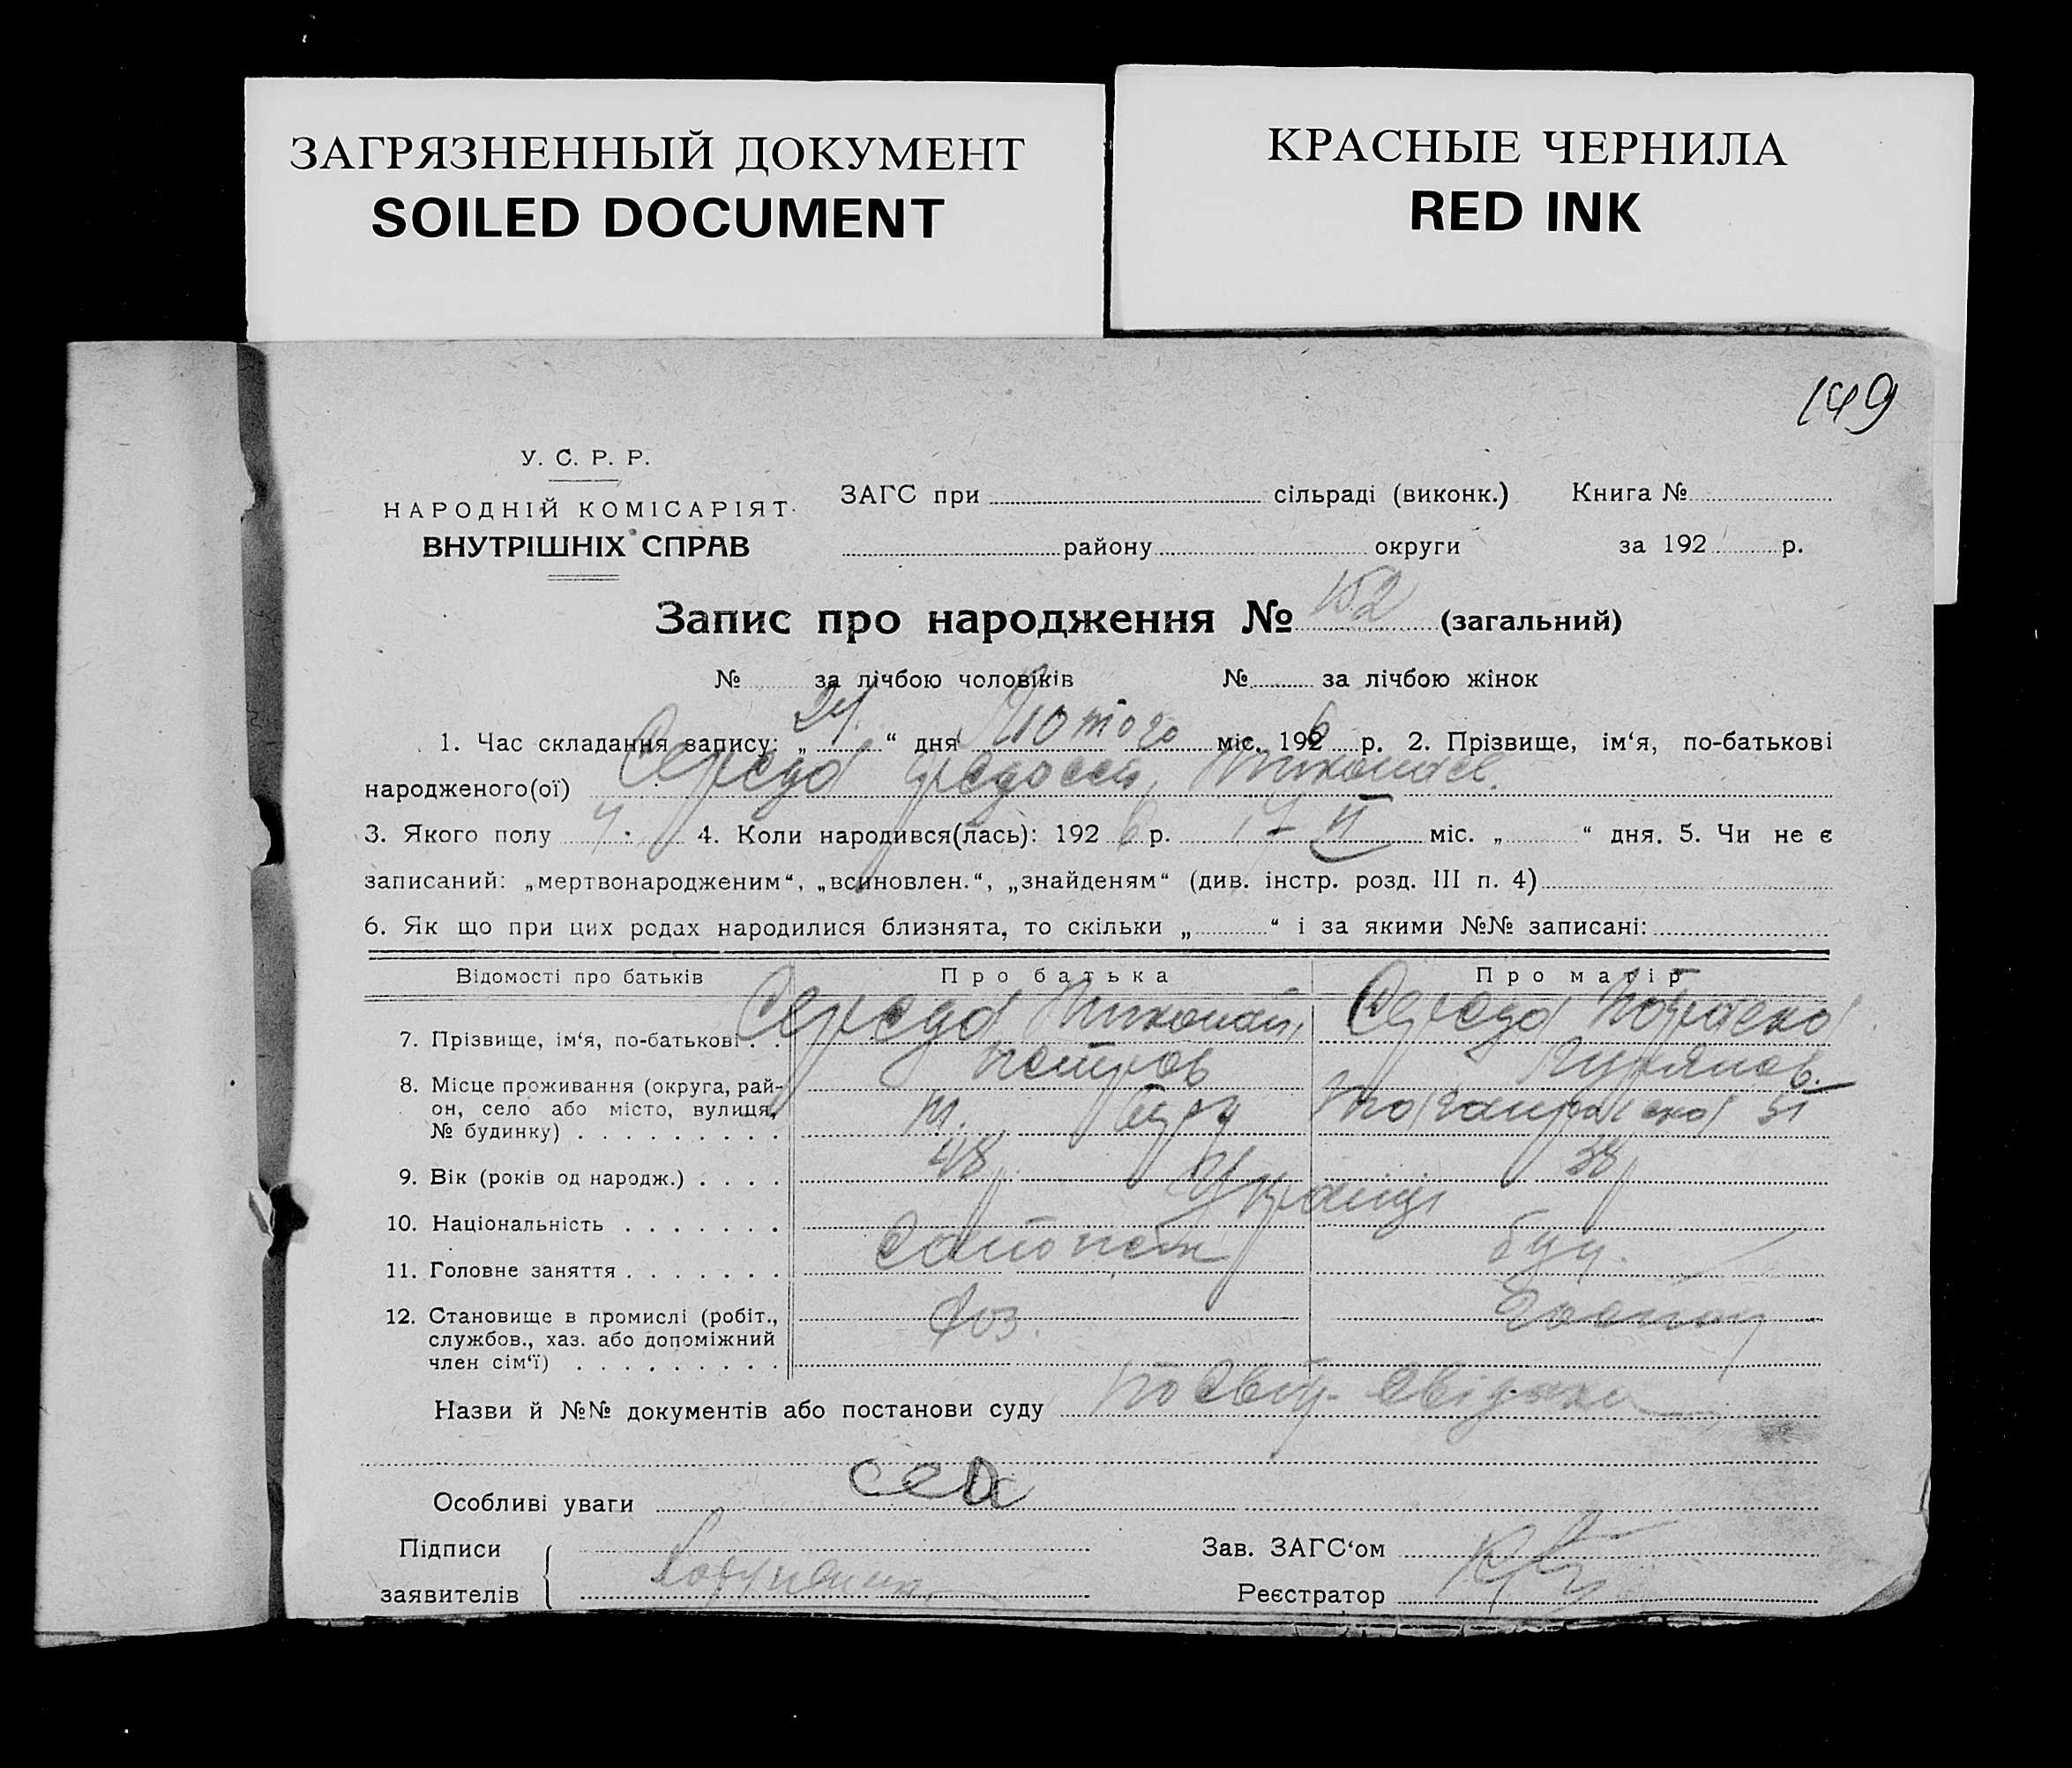 ЗАГРЯЗНЕННЫЙ ДОКУМЕНТ
SOILED DOCUMENT
КРАСНЫЕ ЧЕРНИЛА
RED INK
149
У. С. Р. Р.
НАРОДНІЙ КОМІСАРІЯТ
ВНУТРІШНІХ СПРАВ
ЗАГС при сільраді (виконк.) Книга №
району округи за 192 р.
Запис про народження № 152 (загальний)
№ за лічбою чоловіків № за лічбою жінок
1. Час складання запису: „ 24 “ дня Лютого міс. 1926 р. 2. Прізвище, ім‘я, по-батькові
народженого(ої) Середа Федосей Николаев.
3. Якого полу Ч. 4. Коли народився(лась): 1926 р. 17-II міс. „ “ дня. 5. Чи не є
записаний: „мертвонародженим“, „всиновлен.“, „знайденям“ (див. інстр. розд. III п. 4)
6. Як що при цих родах народилися близнята, то скільки „ “ і за якими №№ записані:
Відомості про батьків Про батька Про матір
7. Прізвище, ім‘я, по-батькові . . Середа Николай Середа Параска
Петров
8. Місце проживання (округа, рай-
он, село або місто, вулиця,
№ будинку) . . . . . . . . . 51
9. Вік (років од народж.) . . . . 48 38
10. Національність . . . . . . . Украінці
11. Головне заняття . . . . . . .
12. Становище в промислі (робіт.,
службов., хаз. або допоміжний
член сім‘ї) . . . . . . . . . Хоз.
Назви й №№ документів або постанови суду
Особливі уваги
Підписи
заявителів
Зав. ЗАГС‘ом
Реєстратор